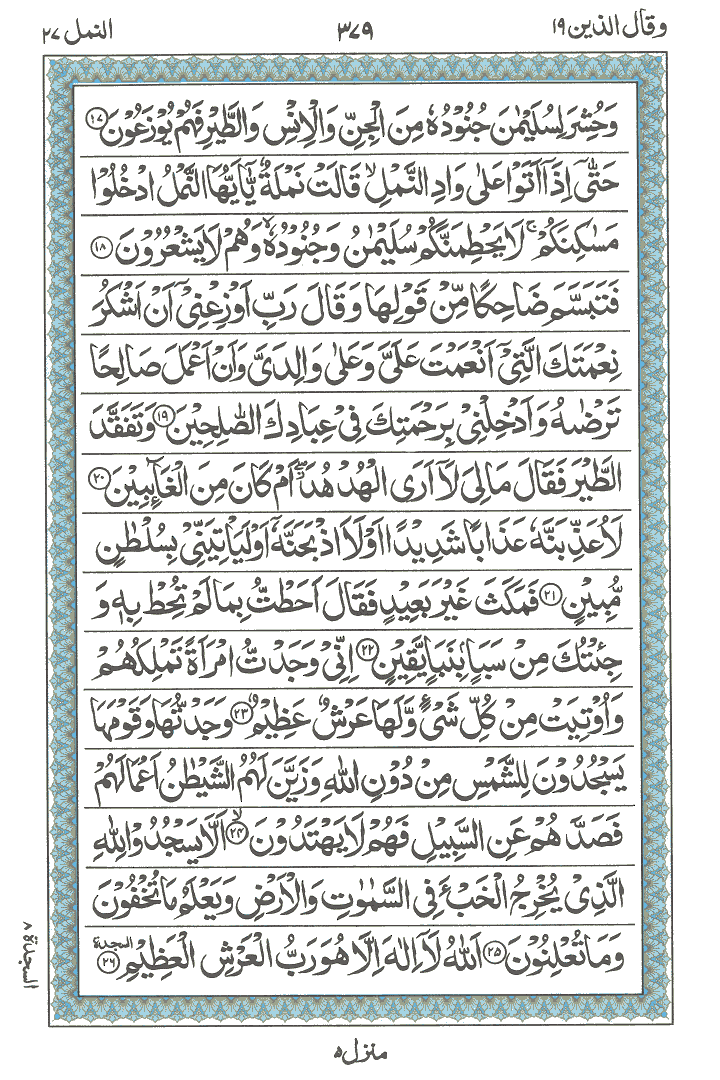 وقال الذين ١٩ ٣٧٩ النمل ٢٧
وَحُشِرَ لِسُلَيْمٰنَ جُنُوْدُهٗ مِنَ الْجِنِّ وَالْاِنْسِ وَالطَّيْرِ فَهُمْ يُوْزَعُوْنَ ١٧
حَتّٰىٓ اِذَآ اَتَوْا عَلٰى وَادِ النَّمْلِ ۙ قَالَتْ نَمْلَةٌ يّٰٓاَيُّهَا النَّمْلُ ادْخُلُوْا
مَسٰكِنَكُمْ ۚ لَا يَحْطِمَنَّكُمْ سُلَيْمٰنُ وَجُنُوْدُهٗ ۙ وَهُمْ لَا يَشْعُرُوْنَ ١٨
فَتَبَسَّمَ ضَاحِكًا مِّنْ قَوْلِهَا وَقَالَ رَبِّ اَوْزِعْنِىْٓ اَنْ اَشْكُرَ
نِعْمَتَكَ الَّتِىْٓ اَنْعَمْتَ عَلَىَّ وَعَلٰى وَالِدَىَّ وَاَنْ اَعْمَلَ صَالِحًا
تَرْضٰىهُ وَاَدْخِلْنِىْ بِرَحْمَتِكَ فِىْ عِبَادِكَ الصّٰلِحِيْنَ ١٩ وَتَفَقَّدَ
الطَّيْرَ فَقَالَ مَالِىَ لَآ اَرَى الْهُدْهُدَ ۖ اَمْ كَانَ مِنَ الْغَآئِبِيْنَ ٢٠
لَاُعَذِّبَنَّهٗ عَذَابًا شَدِيْدًا اَوْ لَاَاذْبَحَنَّهٗٓ اَوْ لَيَاْتِيَنِّىْ بِسُلْطٰنٍ
مُّبِيْنٍ ٢١ فَمَكَثَ غَيْرَ بَعِيْدٍ فَقَالَ اَحَطْتُّ بِمَا لَمْ تُحِطْ بِهٖ وَ
جِئْتُكَ مِنْ سَبَاٍۭ بِنَبَاٍ يَّقِيْنٍ ٢٢ اِنِّىْ وَجَدْتُّ امْرَاَةً تَمْلِكُهُمْ
وَاُوْتِيَتْ مِنْ كُلِّ شَىْءٍ وَّلَهَا عَرْشٌ عَظِيْمٌ ٢٣ وَجَدْتُّهَا وَقَوْمَهَا
يَسْجُدُوْنَ لِلشَّمْسِ مِنْ دُوْنِ اللّٰهِ وَزَيَّنَ لَهُمُ الشَّيْطٰنُ اَعْمَالَهُمْ
فَصَدَّهُمْ عَنِ السَّبِيْلِ فَهُمْ لَا يَهْتَدُوْنَ ۙ ٢٤ اَلَّا يَسْجُدُوْا لِلّٰهِ
الَّذِىْ يُخْرِجُ الْخَبْءَ فِى السَّمٰوٰتِ وَالْاَرْضِ وَيَعْلَمُ مَا تُخْفُوْنَ
وَمَا تُعْلِنُوْنَ ٢٥ اَللّٰهُ لَآ اِلٰهَ اِلَّا هُوَ رَبُّ الْعَرْشِ الْعَظِيْمِ السجدة ٢٦
السجدة ٨
منزل ٥